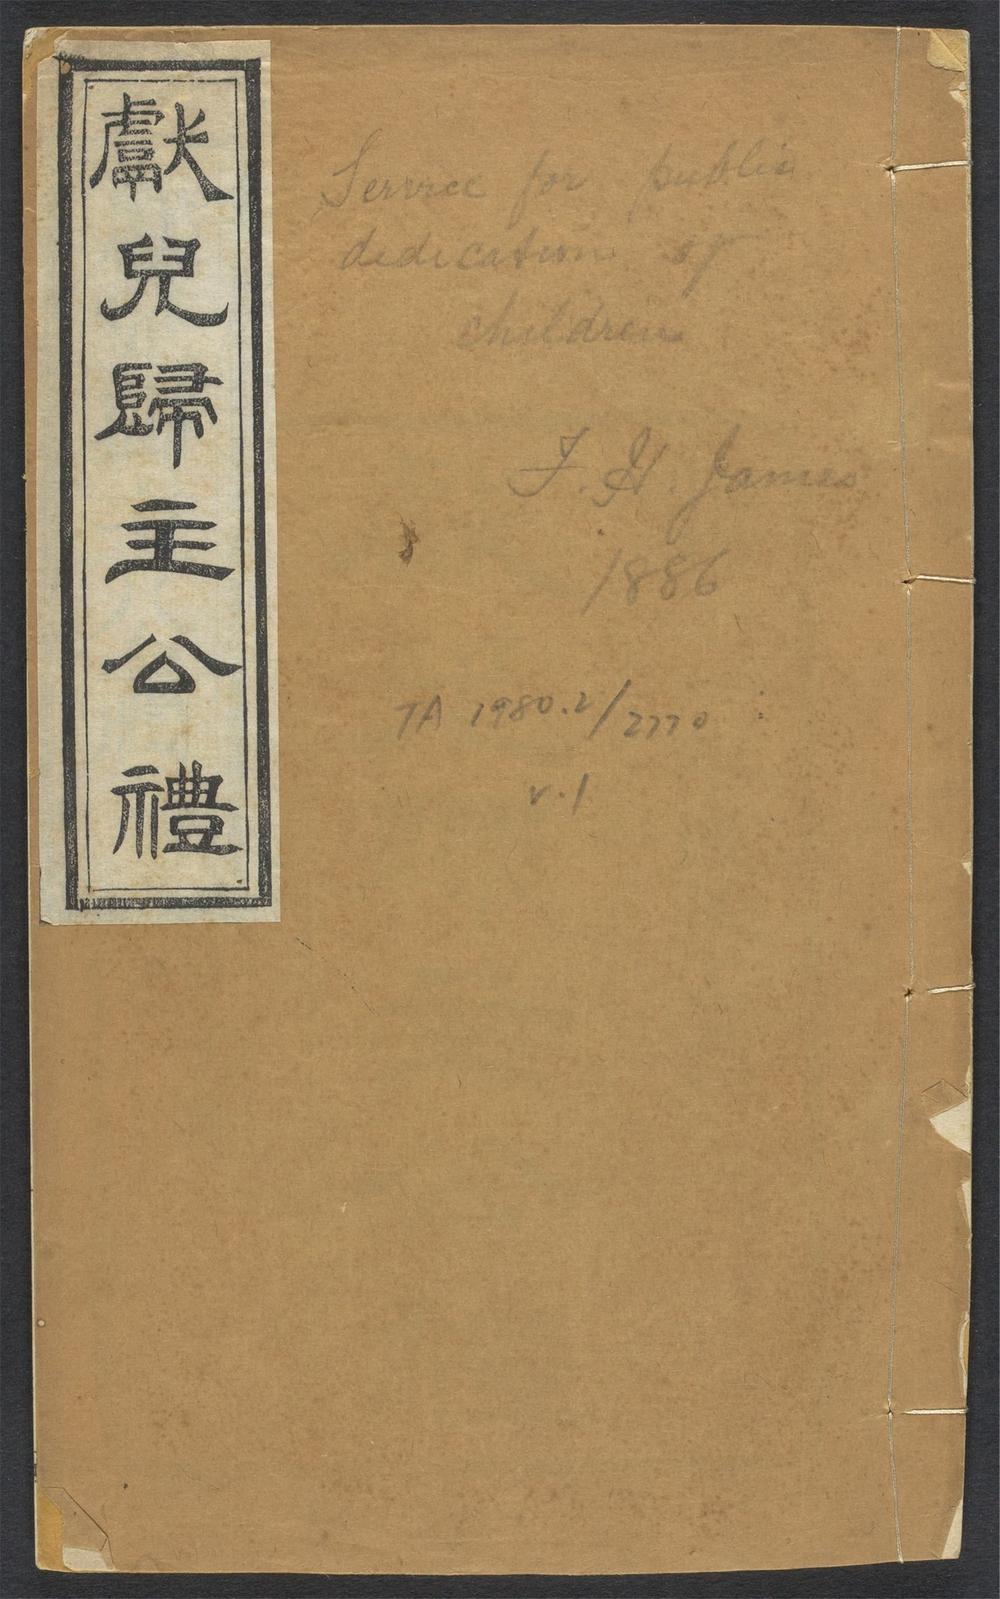 獻兒歸主公禮
Service for public
dedication of
children
F. H. James
1886
TA 1980.2/2770
v.1